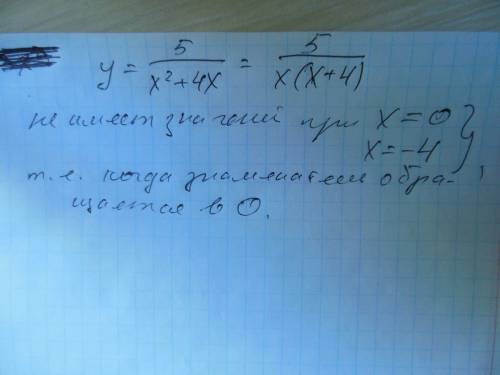 y = 5/(x²+4x) = 5/(x(x+4))
не имеет значений при x=0
x=-4 }
т.е. когда знаменатель обра-
щается в 0.